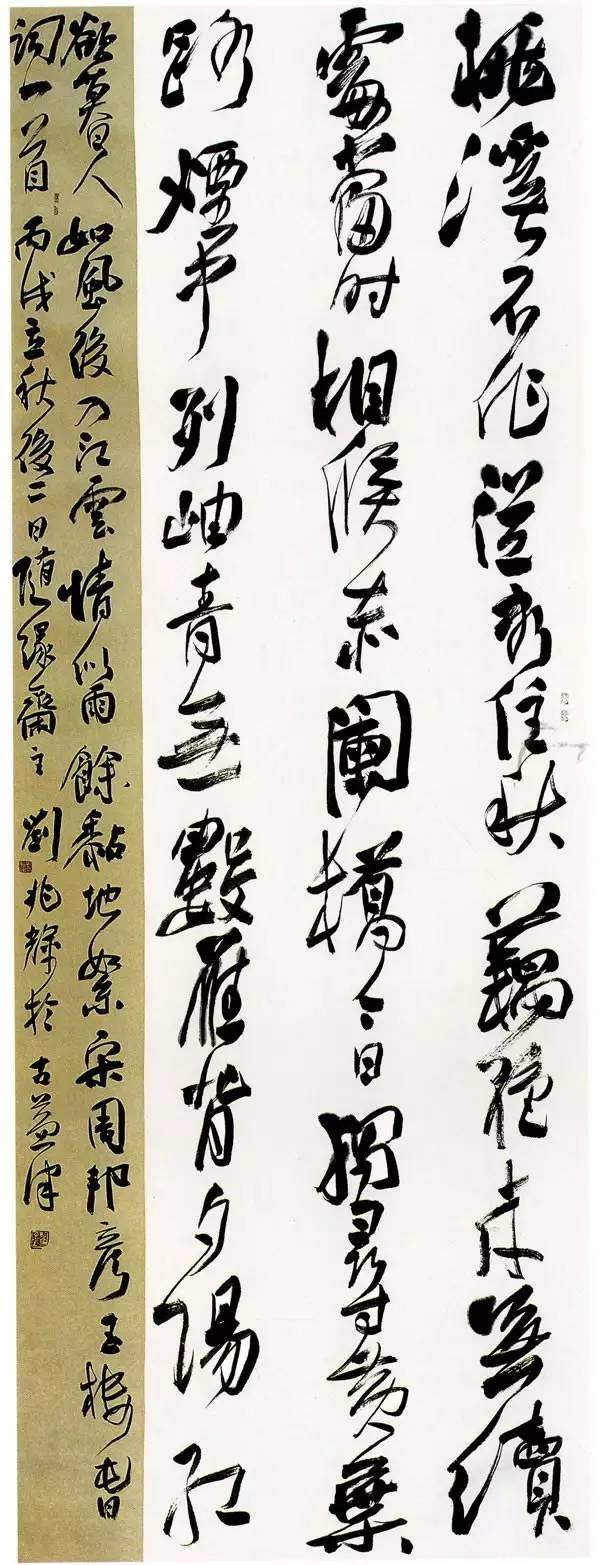 桃溪不作從容住秋藕絕來無續
處當时相候赤闌橋今日獨尋黄葉
路煙中列岫青無數雁背夕陽红
欲暮人如風後入江雲情似雨餘黏地絮宋周邦彥玉樓春
词一首丙戌立秋後二日隨緣齋主劉兆於古益津